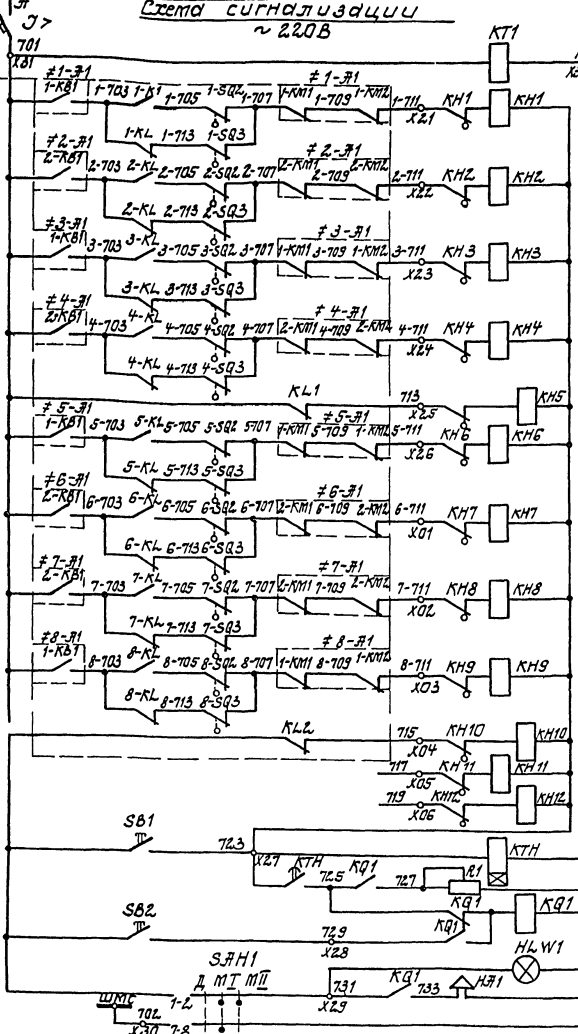 Схема сигнализации
~ 220В
Л
I>
701
XB1
KT1
≠1-Я1
1-KB1 1-703 1-K1 1-705 1-SQ2 1-707
≠1-Я1
1-KM1 1-709 1-KM2 1-711 X21 KH1 KH1
1-KL 1-713 1-SQ3
≠2-Я1
2-KB1 2-703 2-KL 2-705 2-SQ2 2-707
≠2-Я1
2-KM1 2-709 2-KM2 2-711 X22 KH2 KH2
2-KL 2-713 2-SQ3
≠3-Я1
1-KB1 3-703 3-KL 3-705 3-SQ2 3-707
≠3-Я1
1-KM1 3-709 1-KM2 3-711 X23 KH3 KH3
3-KL 3-713 3-SQ3
≠4-Я1
2-KB1 4-703 4-KL 4-705 4-SQ2 4-707
≠4-Я1
2-KM1 4-709 2-KM2 4-711 X24 KH4 KH4
4-KL 4-713 4-SQ3
KL1 713 X25 KH5
≠5-Я1
1-KB1 5-703 5-KL 5-705 5-SQ2 5-707
≠5-Я1
1-KM1 5-709 1-KM2 5-711 X26 KH6 KH6
5-KL 5-713 5-SQ3
≠6-Я1
2-KB1 6-703 6-KL 6-705 6-SQ2 6-707
≠6-Я1
2-KM1 6-709 2-KM2 6-711 X01 KH7 KH7
6-KL 6-713 6-SQ3
≠7-Я1
2-KB1 7-703 7-KL 7-705 7-SQ2 7-707
≠7-Я1
2-KM1 7-709 2-KM2 7-711 X02 KH8 KH8
7-KL 7-713 7-SQ3
≠8-Я1
1-KB1 8-703 8-KL 8-705 8-SQ2 8-707
≠8-Я1
1-KM1 8-709 1-KM2 8-711 X03 KH9 KH9
8-KL 8-713 8-SQ3
KL2 715 X04 KH10 KH10
717 X05 KH11 KH11
719 X06 KH12 KH12
SB1 723 X27 KTH
KTH 725 KQ1 727 R1
KQ1 KQ1
KQ1
SB2 729 X28
HLW1
SAH1
Д МI МII
1-2 731 X29 KQ1 733 HA1
ШМС
702
X30 7-8